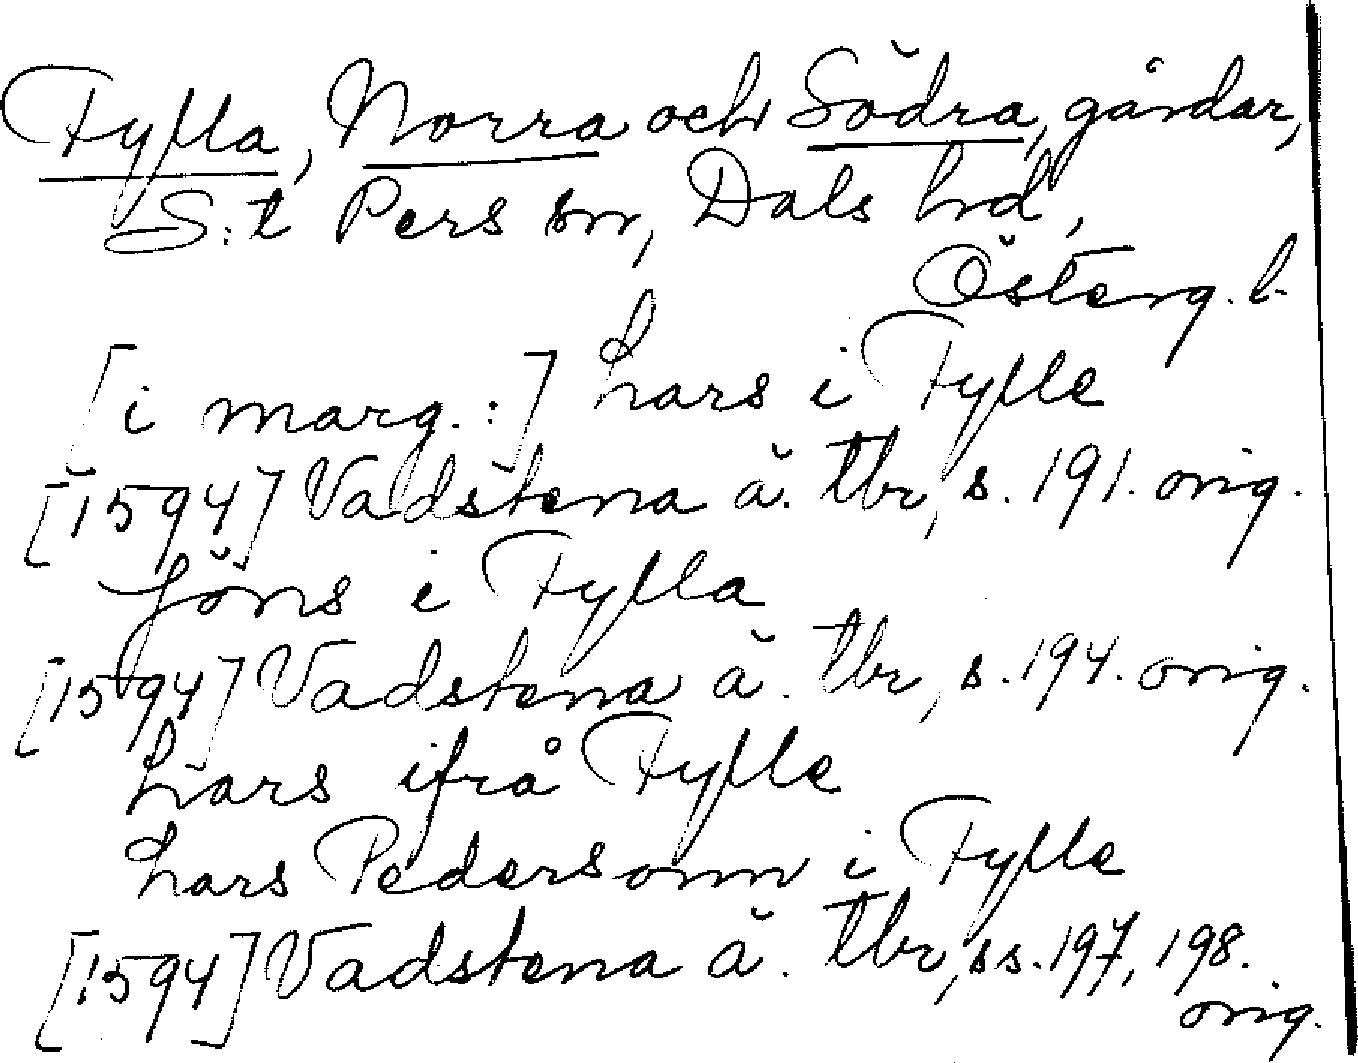 Fylla, Norra och Södra, gårdar,
S:t Pers sn, Dals hd,
Österg. l.
[i marg.:] Lars i Fylle
[1594] Vadstena ä. tbr, s. 191. orig.
Jöns i Fylla
[1594] Vadstena ä. tbr, s. 194. orig.
Lars ifrå Fylle
Lars Pedersonn i Fylle
[1594] Vadstena ä. tbr, ss. 197, 198.
orig.